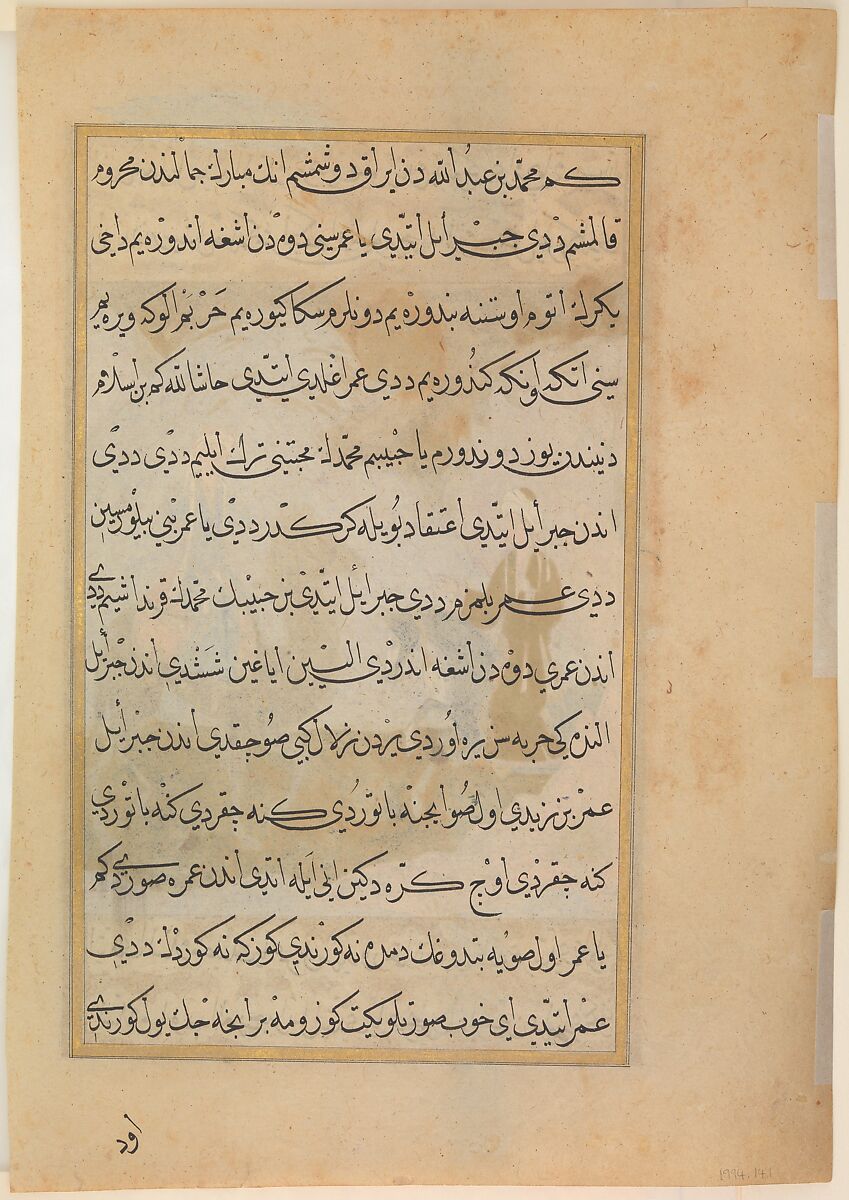 كم محمّد بن عبدُ الله دن ایراق دوشمشم انك مبارك جمالندن محروم
قالمشم دْدي جبرأیل ایتّدي یا عمر سني دوه دن اشغه اندوره یم داخی
یكرك اتوم اوستنه بندوره یم دونلرم سكا كیوره یم حَرْبَمْ الوكه ویره یم
سني اتكه اونكه كندُوره یم ددي عمر اغلدي ایتّدي حاشا لله كم بن اسلام
دیندن یوز دوندورم یا حبیبم محمّدك محبتنی ترك ایلیم ددْي ددْي
اندن جبرأیل ایتّدي اعتقاد بُویله كركدر ددْي یا عمر بْني بیلورمسین
ددي عمر بلمزم ددي جبرایل ایتّدي بن حبیبك محمّدك قرنداشیم ددي
اندن عمري دوه دن اشغه اندردْي الین ایاغین ششدي اندن جبرأیل
النده كي حربه سن یره اوُردي یردن زلال كبي صو چقدي اندن جبرأیل
عمر بن زیدي اول صُو ایچنه باتوردي كنه چقردي كنه باتوردي
كنه چقردْي اوچ كرّه دكین اني ایله اتدي اندن عمره صوردي كم
یا عمر اول صویه بتدوغك دمده نه كورندي كوزكه نه كوردك ددي
عمر ایتّدي اي خوب صورتلو یكت كوزومه بر انجه جك یول كورندي
اود
1994.141